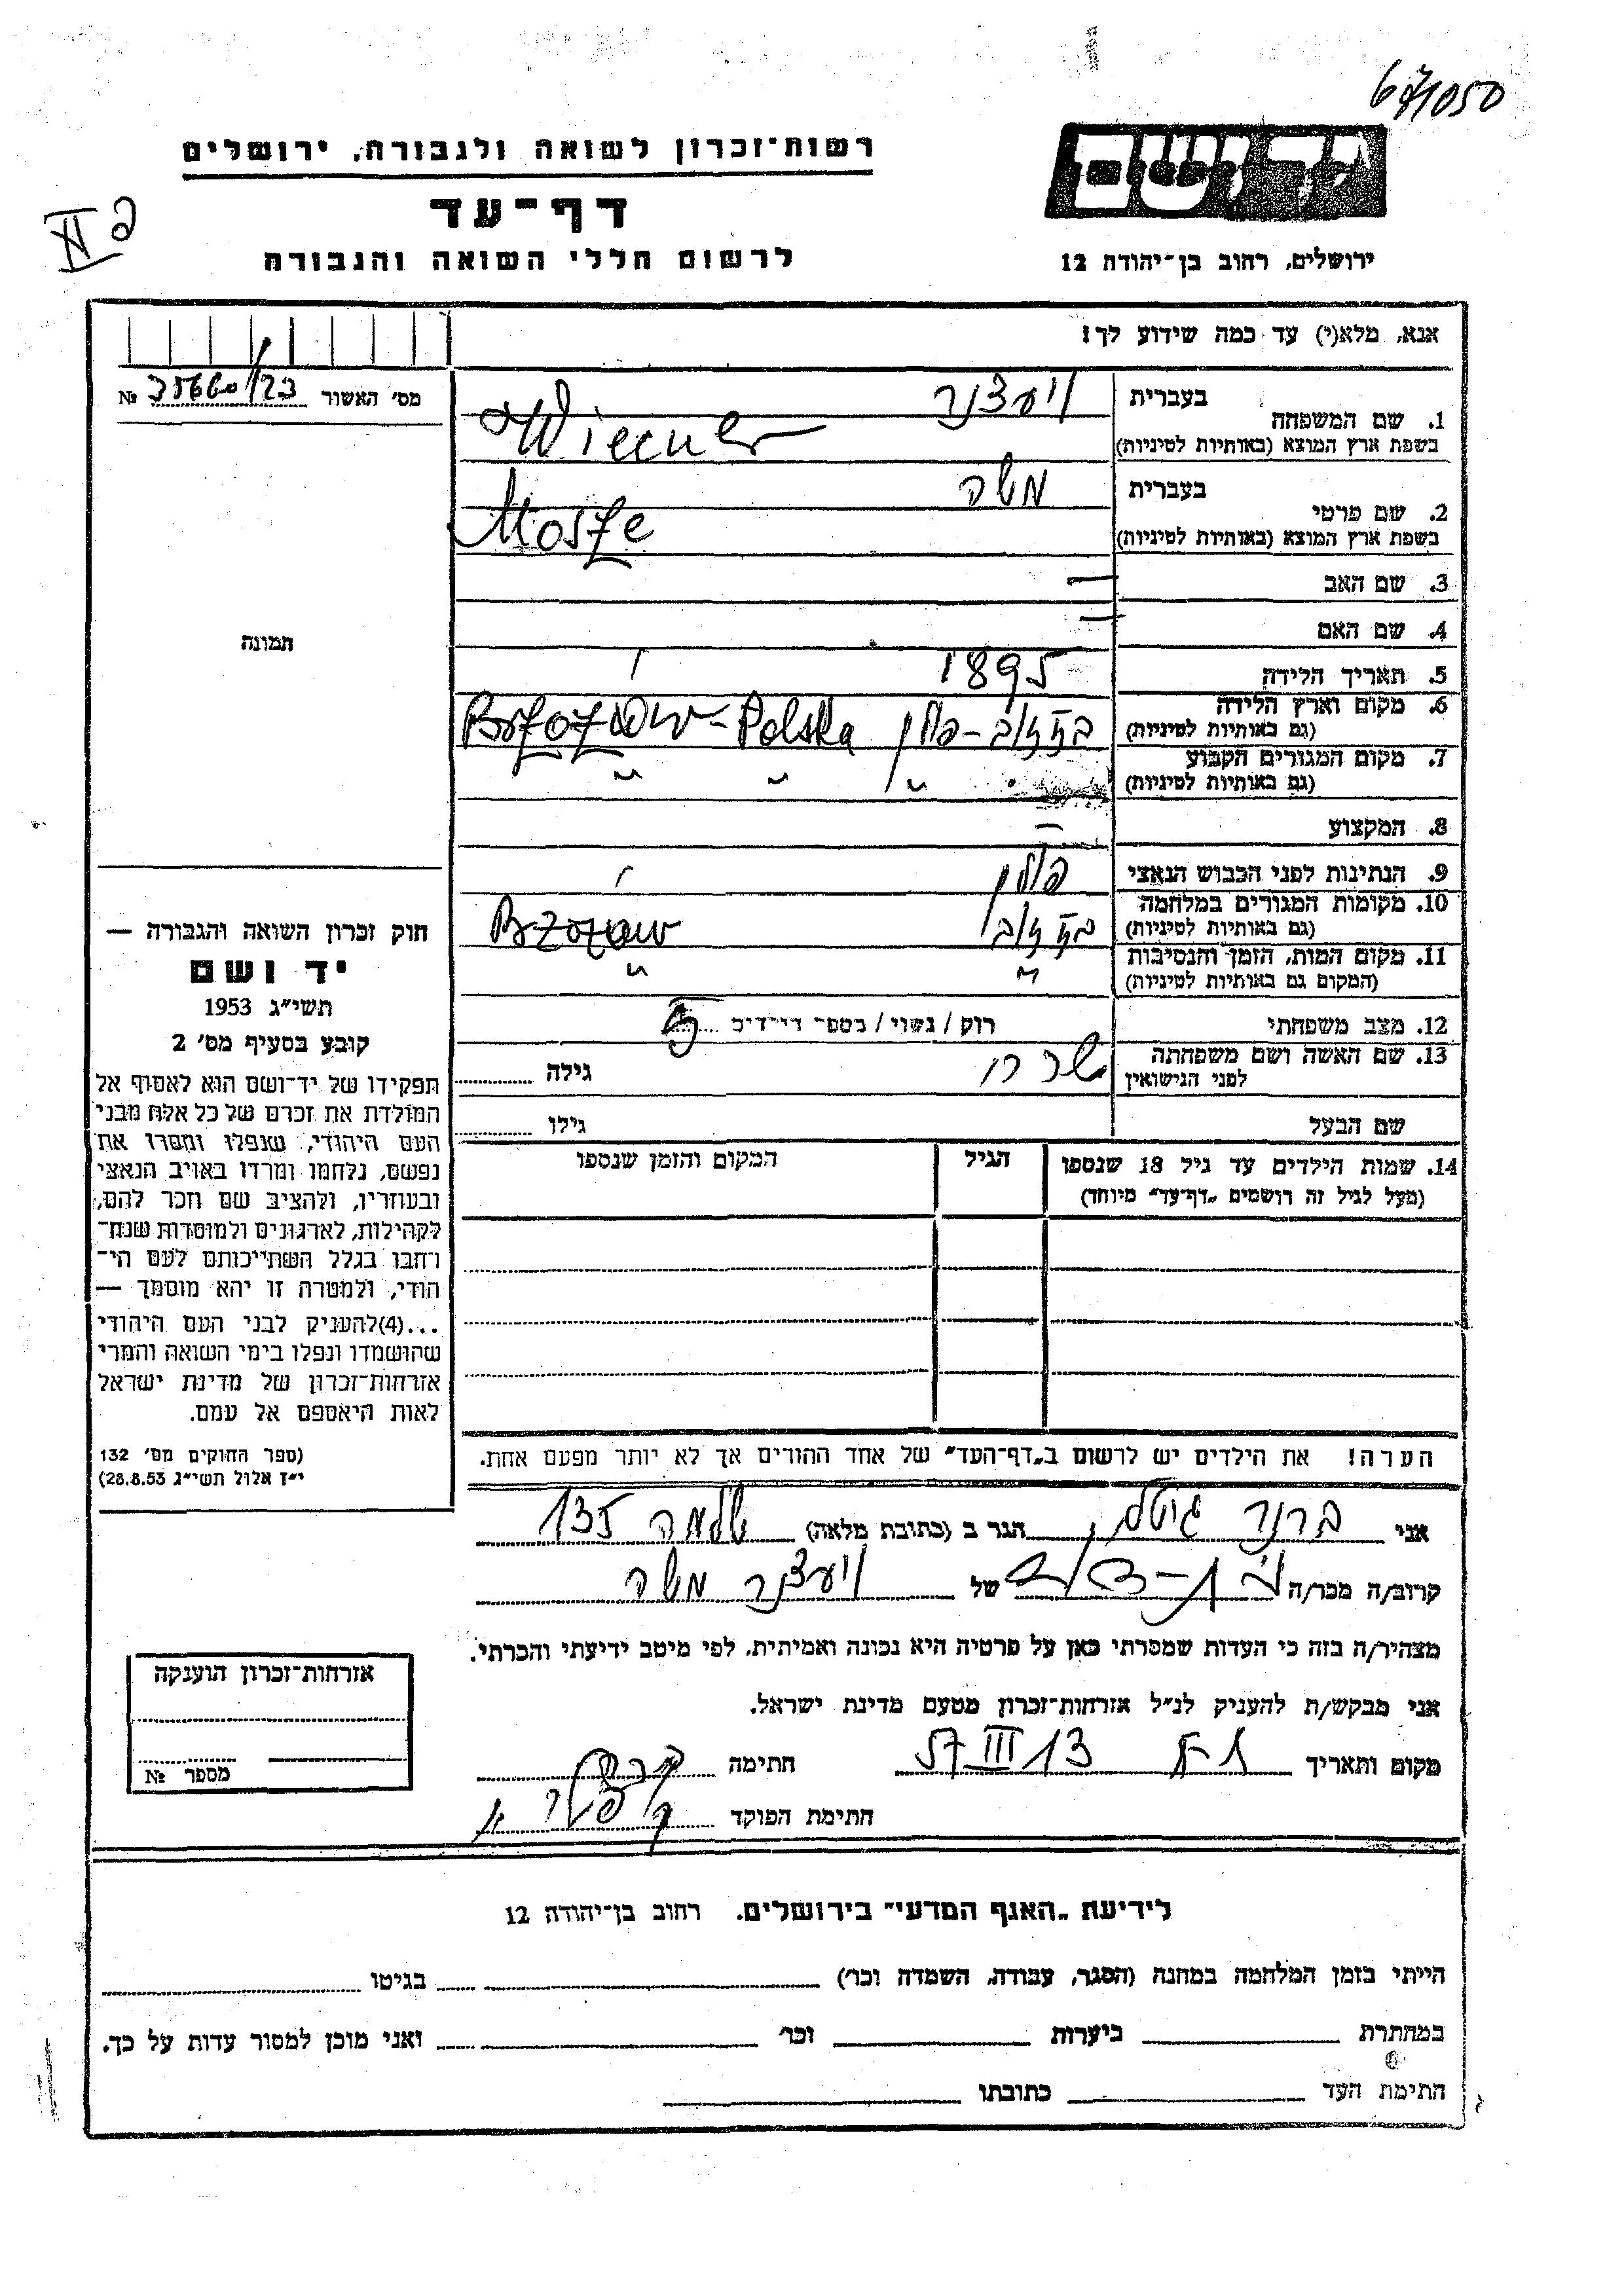 67/050
רשות־זכרון לשואה ולגבורה, ירושלים
דף־עד
לרשום חללי השואה והגבורה
ירושלים, רחוב בן־יהודה 12
אנא, מלא(י) עד כמה שידוע לך!
מס' האשור 35660/123 №
1. שם המשפחה
בעברית ויעצנר
בשפת ארץ המוצא (באותיות לטיניות) Wiecner
2. שם פרטי
בעברית משה
בשפת ארץ המוצא (באותיות לטיניות) Mosze
3. שם האב —
4. שם האם —
תמונה
5. תאריך הלידה 1895
6. מקום וארץ הלידה
(גם באותיות לטיניות) בזוזוב - פולין Brzozów - Polska
7. מקום המגורים הקבוע
(גם באותיות לטיניות) " " " "
8. המקצוע —
9. הנתינות לפני הכבוש הנאצי פולין
10. מקומות המגורים במלחמה
(גם באותיות לטיניות) Brzozów
11. מקום המות, הזמן והנסיבות
(המקום גם באותיות לטיניות) " "
12. מצב משפחתי רוק / נשוי / מספר הילדים 5
13. שם האשה ושם משפחתה
לפני הנישואין גילה
שם הבעל גילו
14. שמות הילדים עד גיל 18 שנספו
(מעל לגיל זה רושמים „דף־עד" מיוחד)
הגיל
המקום והזמן שנספו
הערה! את הילדים יש לרשום ב„דף־העד" של אחד ההורים אך לא יותר מפעם אחת.
חוק זכרון השואה והגבורה —
יד ושם
תשי"ג 1953
קובע בסעיף מס' 2
תפקידו של יד־ושם הוא לאסוף אל
המולדת את זכרם של כל אלה מבני
העם היהודי, שנפלו ומסרו את
נפשם, נלחמו ומרדו באויב הנאצי
ובעוזריו, ולהציב שם וזכר להם,
לקהילות, לארגונים ולמוסדות שנח־
רחבו בגלל השתייכותם לעם הי־
הודי, ולמטרה זו יהא מוסמך —
...(4)להעניק לבני העם היהודי
שהושמדו ונפלו בימי השואה והמרי
אזרחות־זכרון של מדינת ישראל
לאות היאספם אל עמם.
(ספר החוקים מס' 132
י"ז אלול תשי"ג 28.8.53)
אני ברנר הגר ב (כתובת מלאה) שלמה 135
קרוב/ה מכר/ה של ויעצנר משה
מצהיר/ה בזה כי העדות שמסרתי כאן על פרטיה היא נכונה ואמיתית, לפי מיטב ידיעתי והכרתי.
אני מבקש/ת להעניק לנ"ל אזרחות־זכרון מטעם מדינת ישראל.
מקום ותאריך ת"א 13 III 57 חתימה
חתימת הפוקד
אזרחות־זכרון הוענקה
מספר №
לידיעת „האגף המדעי" בירושלים, רחוב בן־יהודה 12
הייתי בזמן המלחמה במחנה (הסגר, עבודה, השמדה וכר') בגיטו
במחתרת ביערות וכר' ואני מוכן למסור עדות על כך.
חתימת העד כתובתו